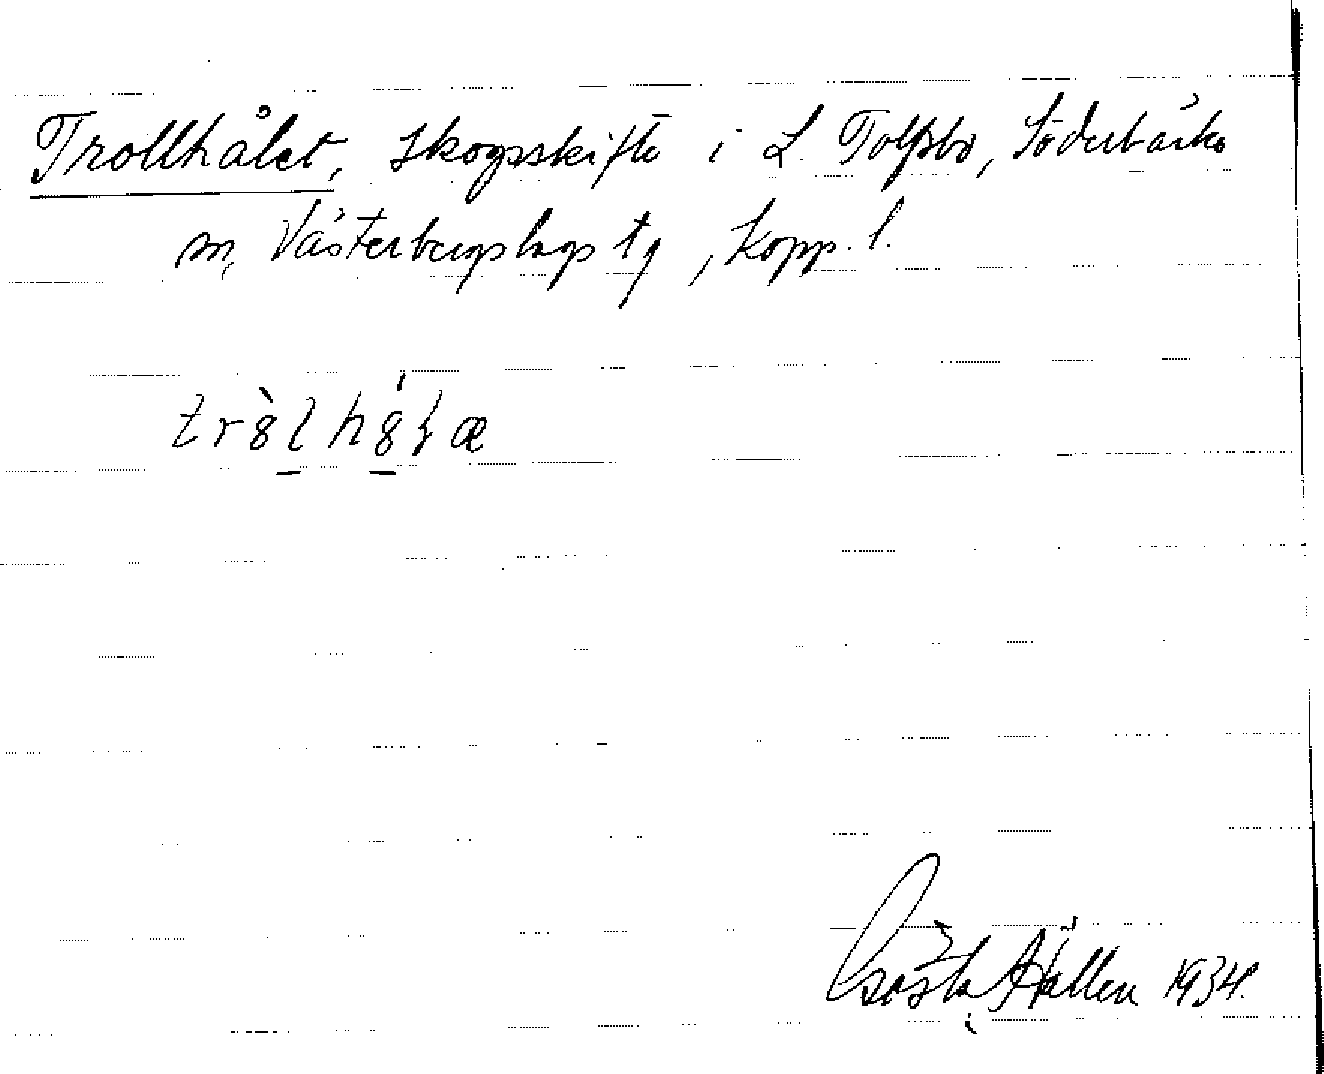 Trollhålet, skogsskifte i L. Tolfsbo, Söderbärke
sn, Västerbergslags tg, Kopp. l.
trò8lh8́ɭæ
Gösta Hällen 1934.